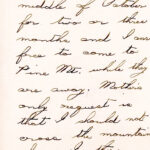 middle of October
for two or three
months and I am
free to come to
Pine Mt. while they
are away. Mother's
only request is
that I should not
cross the mountain